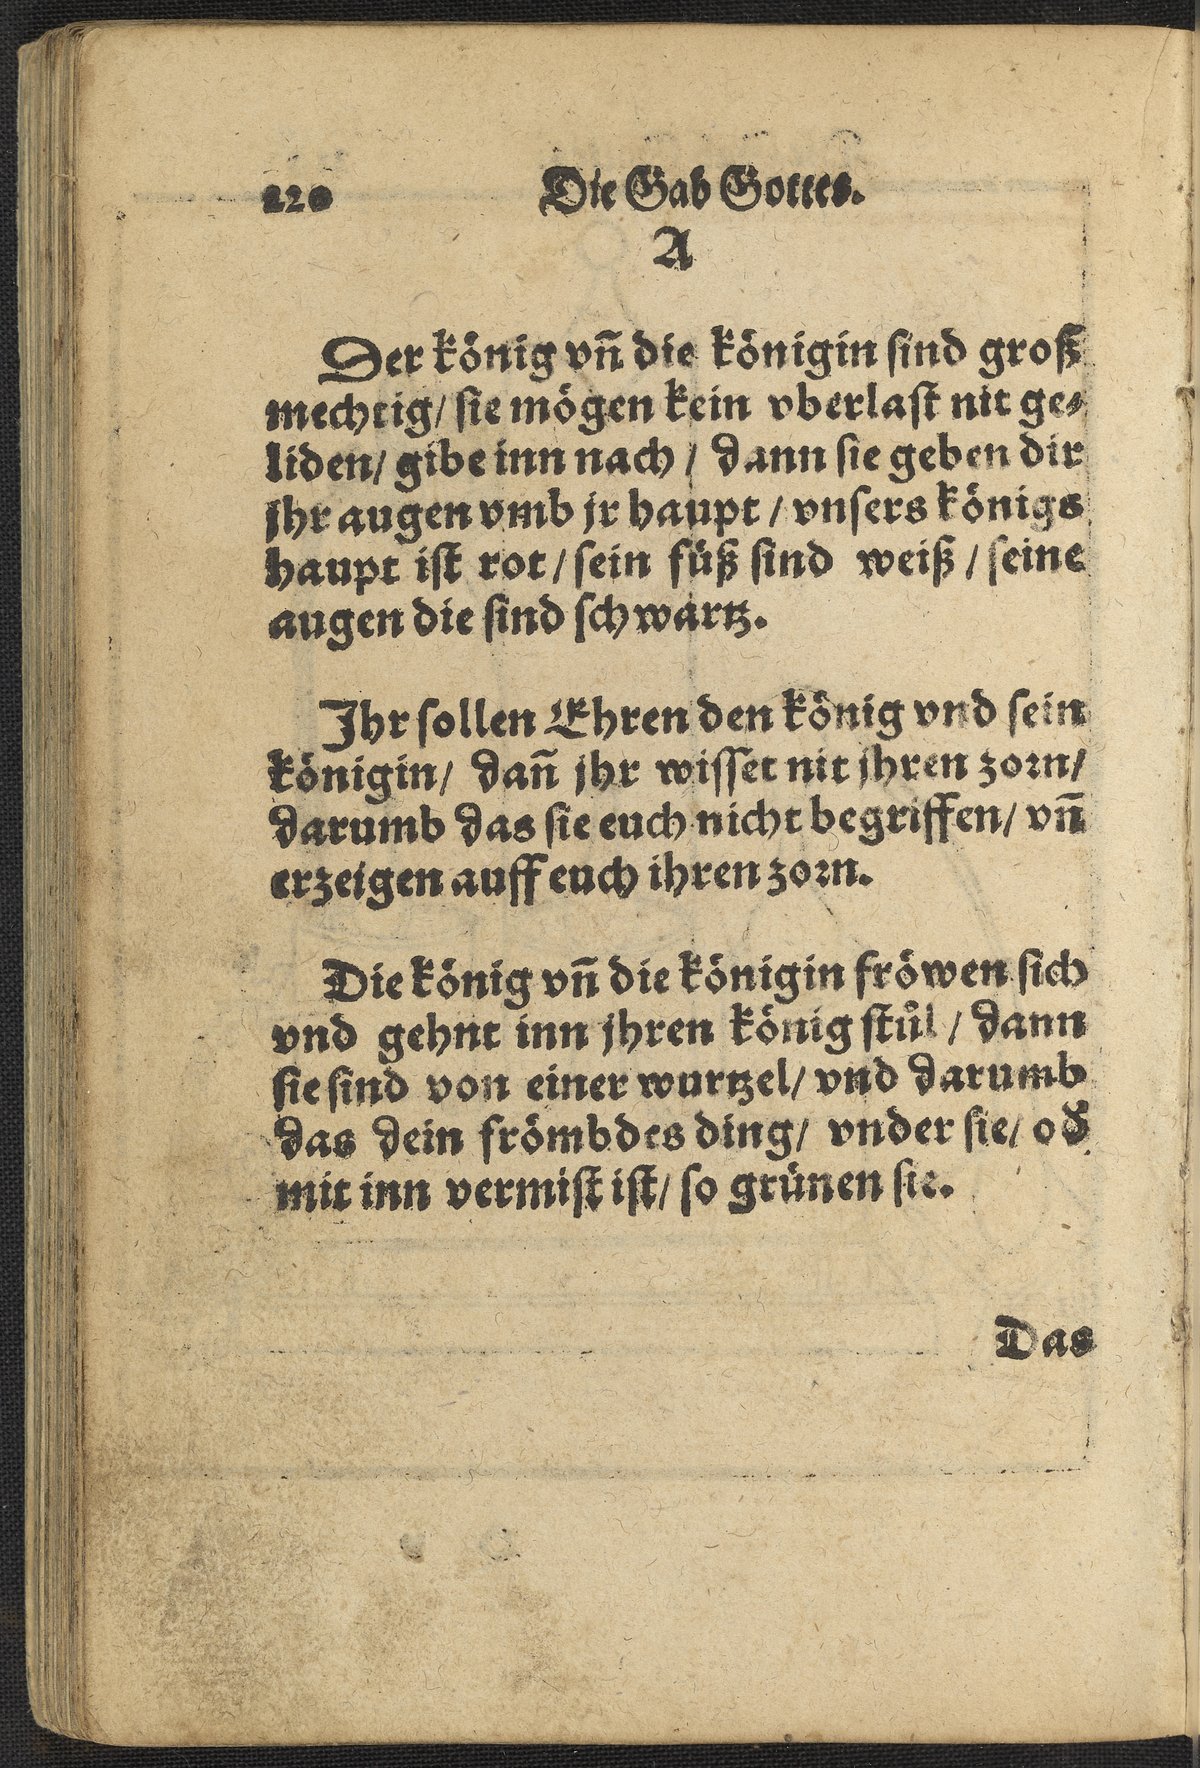 220 Die Gab Gottes.
A
Der könig vñ die königin sind groß
mechtig/ sie mögen kein vberlast nit ge⸗
liden/ gibe inn nach / dann sie geben dir
jhr augen vmb jr haupt / vnsers königs
haupt ist rot / sein füß sind weiß / seine
augen die sind schwartz.
Ihr sollen Ehren den könig vnd sein
königin/ dañ jhr wisset nit jhren zorn/
darumb das sie euch nicht begriffen/ vñ
erzeigen auff euch ihren zorn.
Die könig vñ die königin fröwen sich
vnd gehnt inn jhren könig stůl / dann
sie sind von einer wurtzel/ vnd darumb
das dein frömbdes ding/ vnder sie/ od̃
mit inn vermist ist/ so grünen sie.
Das